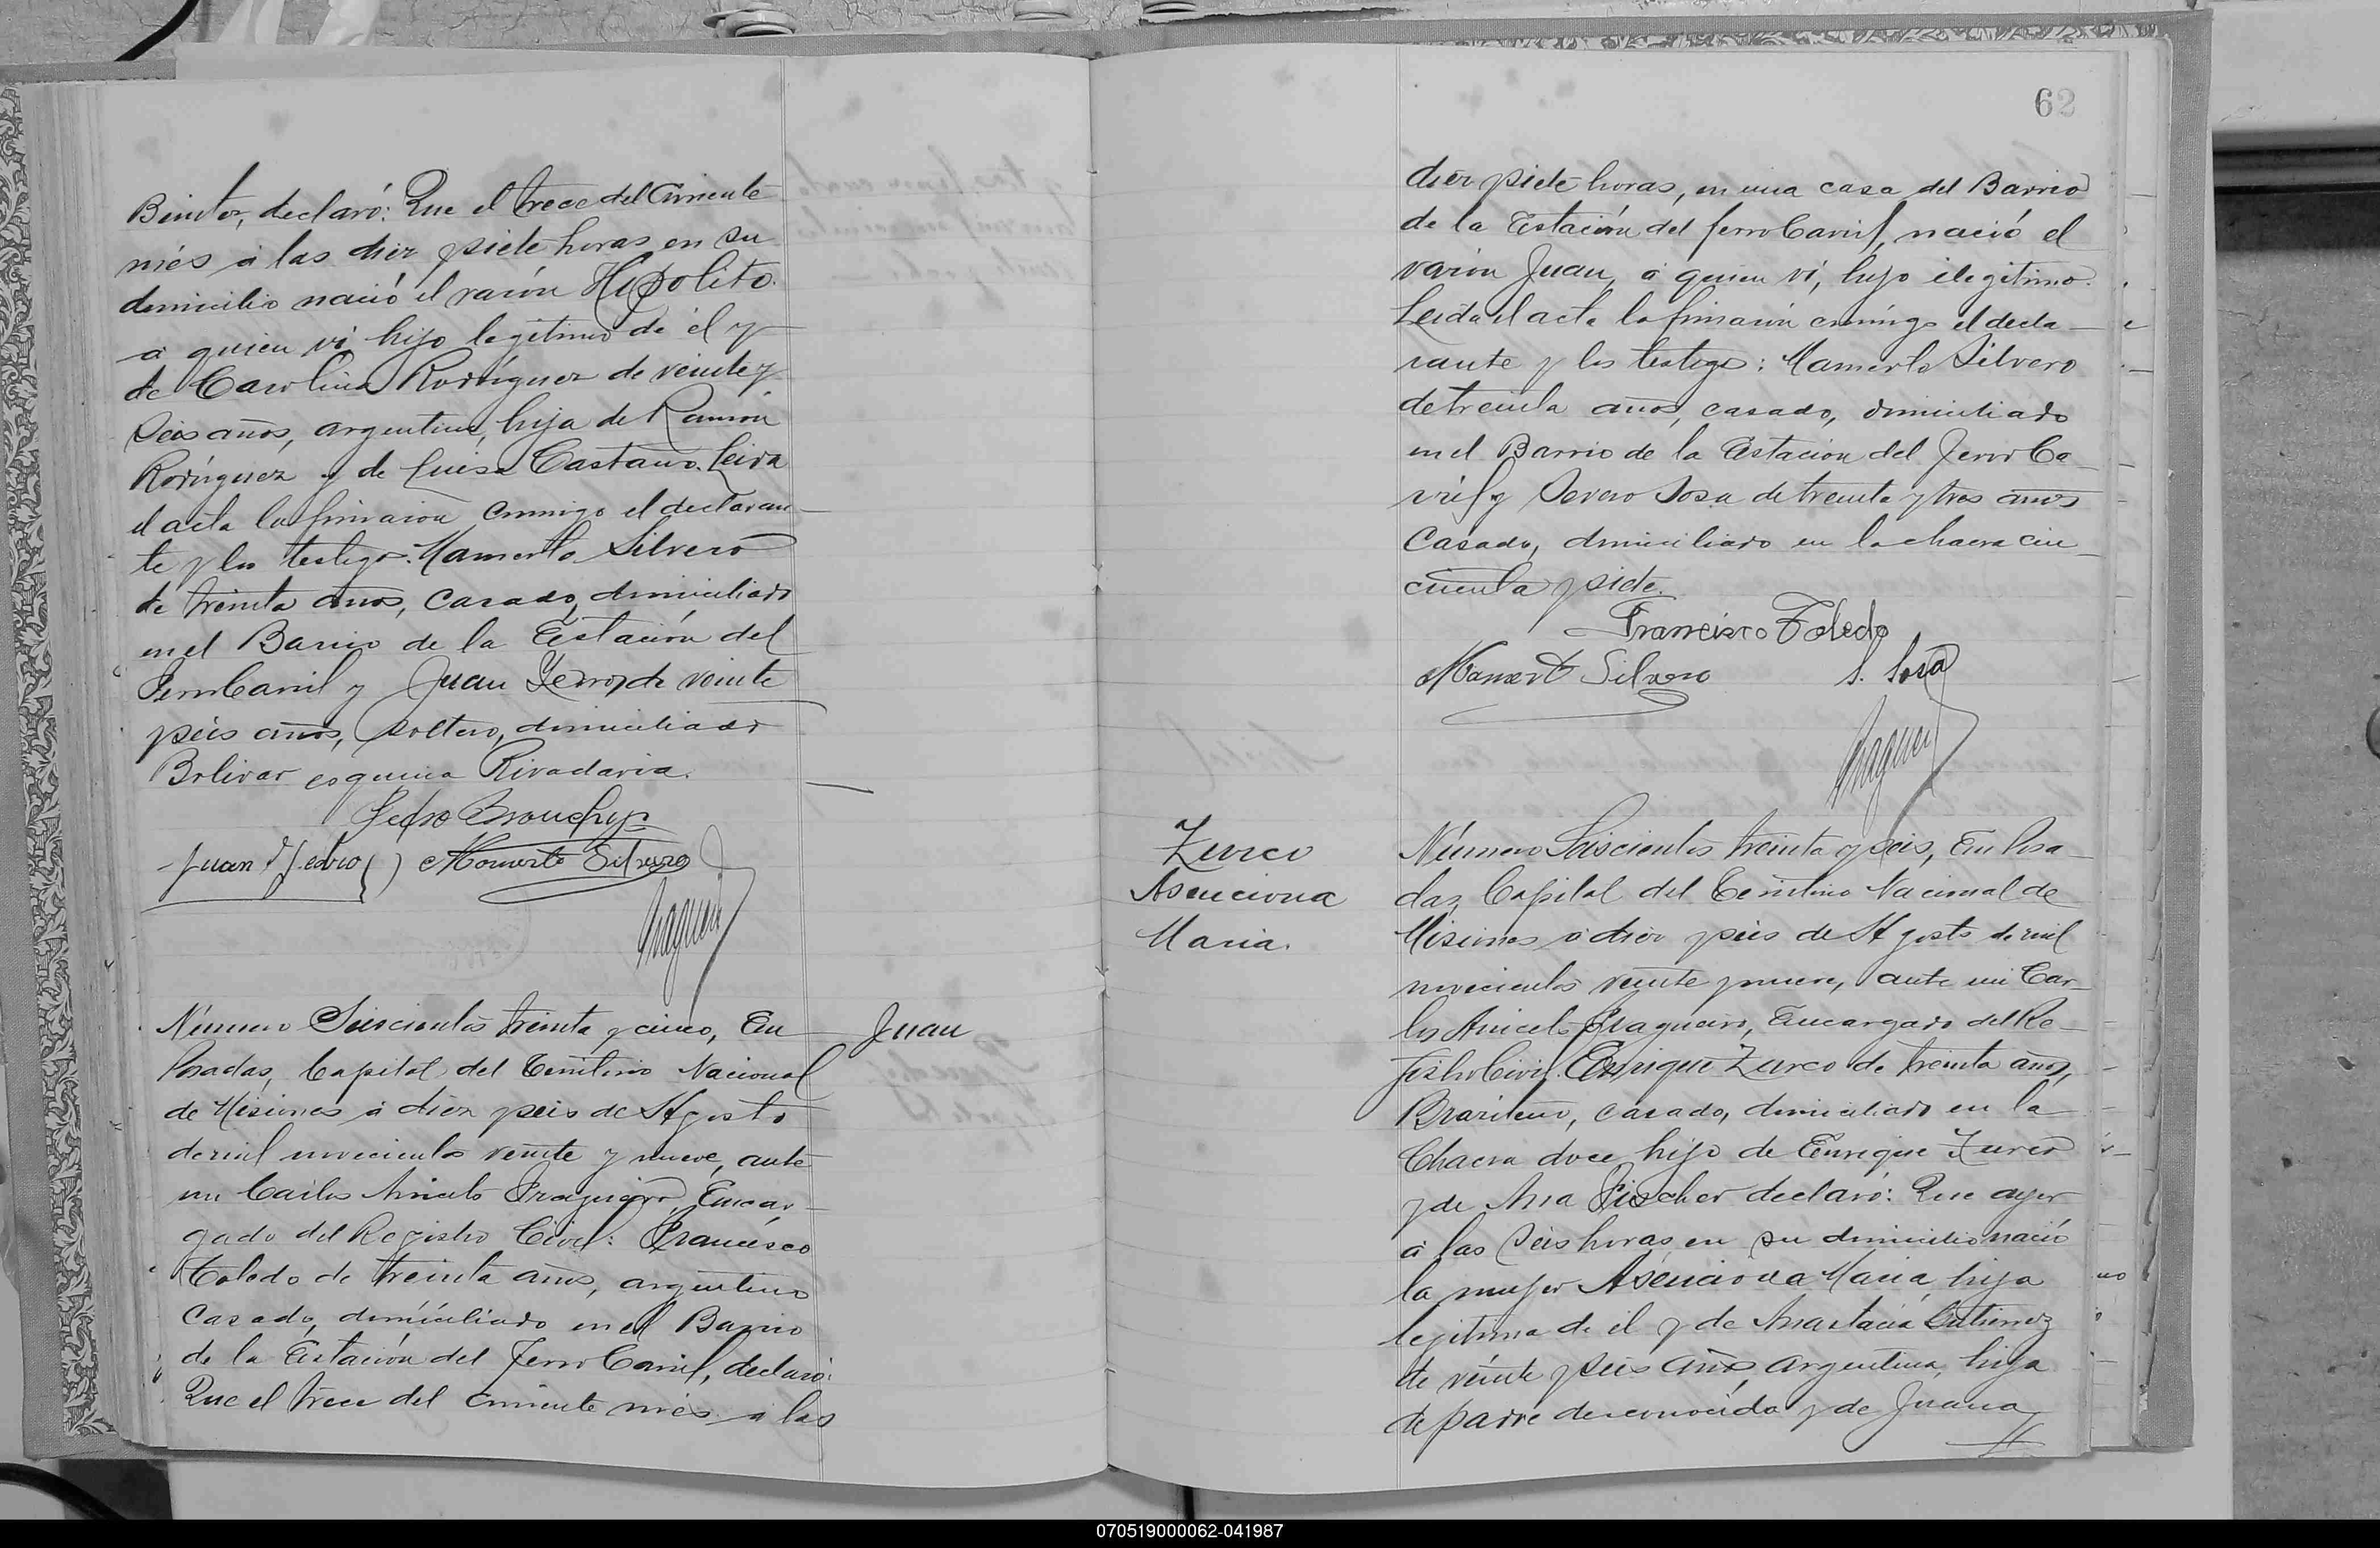 Benitez, declaró: Que el trece del corriente
més á las diez y siete horas en su
domicilio nació el varón Hipolito
a quien ví hijo legitimo de él y
de Carolina Rodríguez de veinte y
seis años, argentina, hija de Ramón
Rodríguez y de Luisa Castaño. Leida
el acta la firmaron conmigo el declaran-
te y los testigos: Mamerto Silvero
de treinta años, casado, domiciliado
en el Barrio de la Estación del
FerroCarril y Juan Yedro, de veinte
y seis años, soltero, domiciliado
Bolivar esquina Rivadavia.
Pedro
Juan Yedro Mamerto Silvero
Número Seiscientos treinta y cinco, En
Posadas, Capital del Territorio Nacional
de Misiones á diez y seis de Agosto
de mil novecientos veinte y nueve, ante
mi Carlos Aniceto Fragueiro, Encar-
gado del Registro Civil: Francisco
Toledo de treinta años, argentino
casado, domiciliado en el Barrio
de la Estación del Ferro Carril, declaró:
Que el trece del corriente més á las
Juan
62
diez y siete horas, en una casa del Barrio
de la Estación del ferroCarril, nació el
varón Juan, á quien ví, hijo ilegitimo.
Leida el acta la firmaron conmigo el decla-
rante y los testigos: Mamerto Silvero
de treinta años, casado, domiciliado
en el Barrio de la Estación del FerroCa-
rril y Severo Sosa de treinta y tres años
casado, domiciliado en la chacra cin-
cuenta y siete.
Francisco Toledo
Mamerto Silvero S. Sosa
Zurco
Asenciona
Maria.
Número Seiscientos treinta y seis, En Posa-
das, Capital del Territorio Nacional de
Misiones á diez y seis de Agosto de mil
novecientos veinte y nueve, ante mi Car-
los Aniceto Fragueiro, Encargado del Re-
gistro Civil: Enrique Zurco de treinta años,
Brasilero, casado, domiciliado en la
Chacra doce hijo de Enrique Zurco
y de Ana Fischer declaró: Que ayer
á las seis horas en su domicilio nació
la mujer Asenciona Maria, hija
legitima de él y de Anastacia Gutierrez
de veinte y seis años, argentina, hija
de padre desconocido y de Juana
070519000062-041987